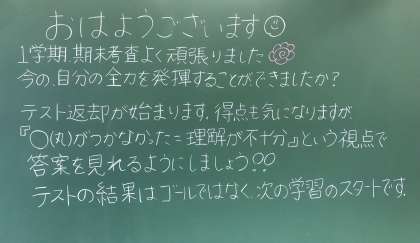 おはようございます
1学期.期末考査よく頑張りました
今の.自分の全力を発揮することができましたか?
テスト返却が始まります.得点も気になりますが
『○(丸)がつかなかった=理解が不十分』という視点で
答案を見れるようにしましょう??
テストの結果はゴールではなく、次の学習のスタートです.